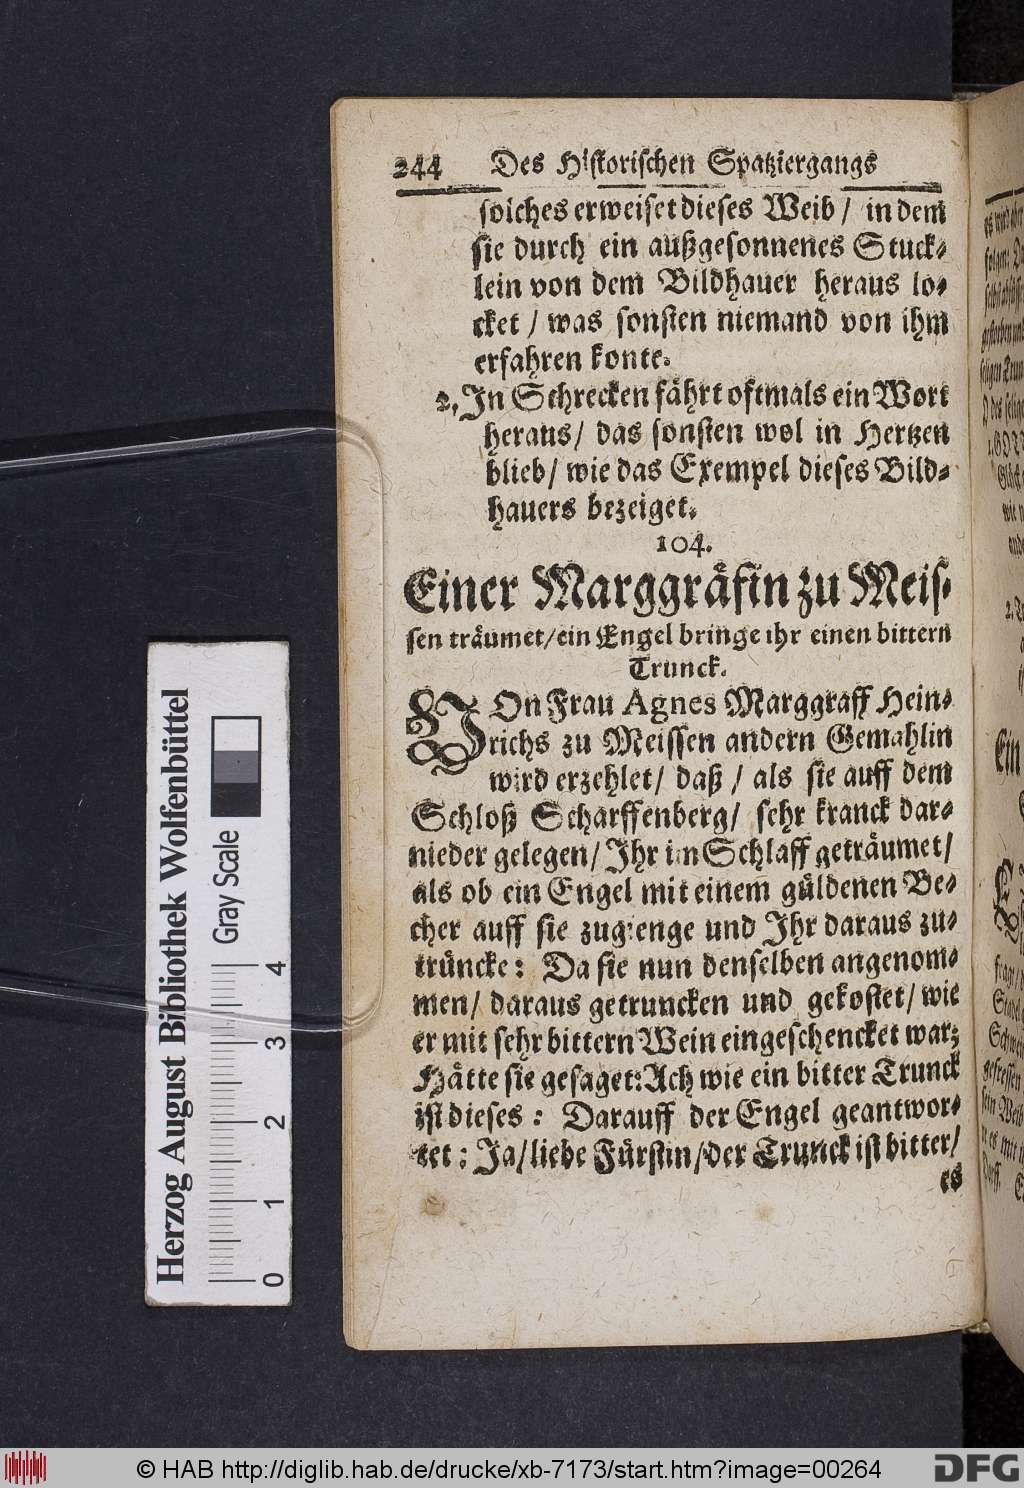 244 Des Historischen Spatziergangs
solches erweiset dieses Weib / in dem
sie durch ein außgesonnenes Stuck-
lein von dem Bildhauer heraus lo-
cket / was sonsten niemand von ihm
erfahren konte.
2. In Schrecken fährt oftmals ein Wort
heraus / das sonsten wol in Hertzen
blieb / wie das Exempel dieses Bild-
hauers bezeiget.
104.
Einer Marggräfin zu Meis-
sen träumet / ein Engel bringe ihr einen bittern
Trunck.
VOn Frau Agnes Marggraff Hein-
richs zu Meissen andern Gemahlin
wird erzehlet / daß / als sie auff dem
Schloß Scharffenberg / sehr kranck dar-
nieder gelegen / Ihr im Schlaff geträumet /
als ob ein Engel mit einem güldenen Be-
cher auff sie zugienge und Ihr daraus zu-
trüncke: Da sie nun denselben angenom-
men / daraus getruncken und gekostet / wie
er mit sehr bittern Wein eingeschencket war;
Hätte sie gesaget: Ach wie ein bitter Trunck
ist dieses: Darauff der Engel geantwor-
tet: Ja / liebe Fürstin / der Trunck ist bitter /
es
Herzog August Bibliothek Wolfenbüttel
Gray Scale
0 1 2 3 4
© HAB http://diglib.hab.de/drucke/xb-7173/start.htm?image=00264
DFG